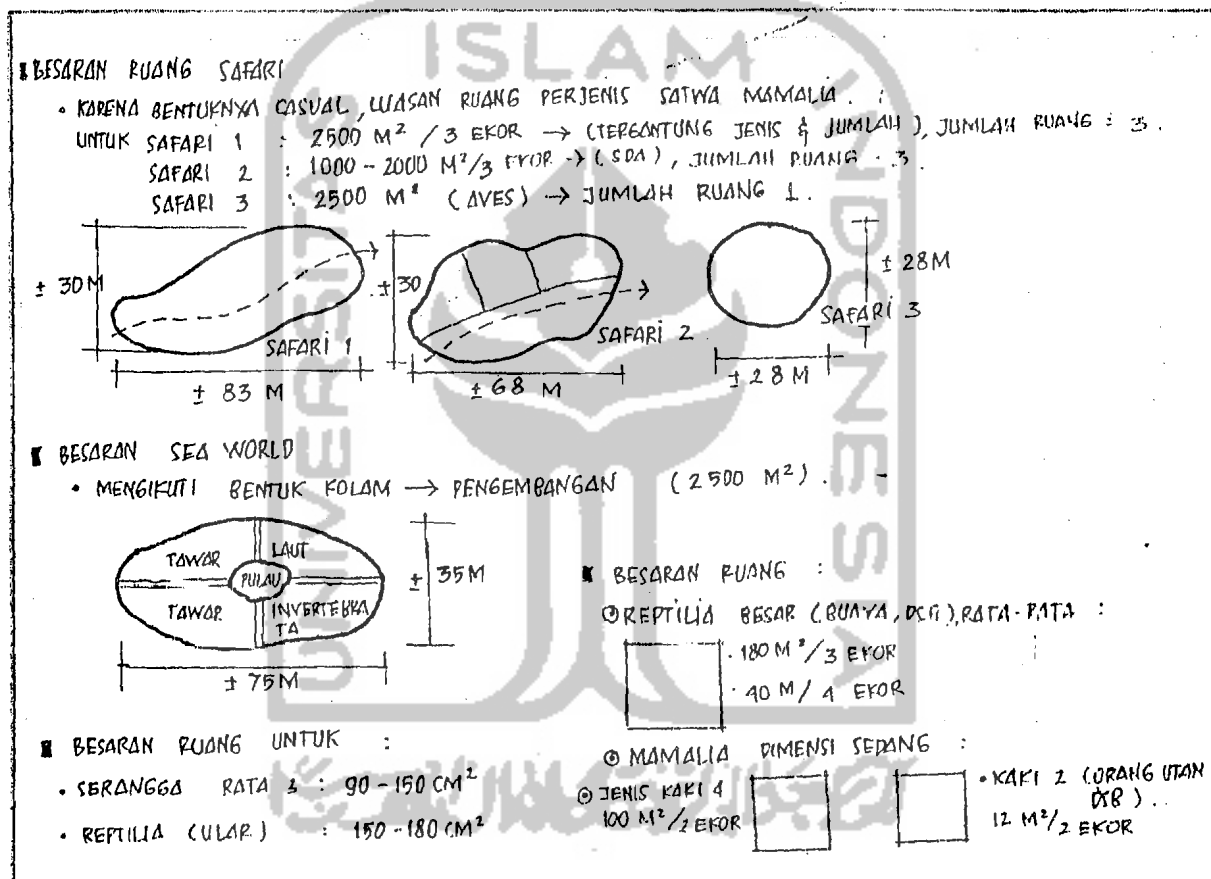 ISLAM
UNIVERSITAS
INDONESIA
BESARAN RUANG SAFARI
• KARENA BENTUKNYA CASUAL, LUASAN RUANG PERJENIS SATWA MAMALIA. :
UNTUK SAFARI 1 : 2500 M² / 3 EKOR → (TERGANTUNG JENIS & JUMLAH), JUMLAH RUANG : 3.
SAFARI 2 : 1000 - 2000 M²/3 EKOR → (SDA), JUMLAH RUANG : 3.
SAFARI 3 : 2500 M² (AVES) → JUMLAH RUANG 1.
± 30 M
SAFARI 1
± 83 M
± 30
SAFARI 2
± 68 M
± 28 M
SAFARI 3
± 28 M
BESARAN SEA WORLD
• MENGIKUTI BENTUK KOLAM → PENGEMBANGAN (2500 M²). -
TAWAR
LAUT
PULAU
TAWAR
INVERTEBRA
TA
± 35 M
± 75 M
BESARAN RUANG :
REPTILIA BESAR (BUAYA, DLL), RATA-RATA :
• 180 M²/3 EKOR
• 40 M/ 4 EKOR
BESARAN RUANG UNTUK :
• SERANGGA RATA 2 : 90 - 150 CM²
• REPTILIA (ULAR) : 150 - 180 CM²
MAMALIA DIMENSI SEDANG :
JENIS KAKI 4
100 M²/2 EKOR
• KAKI 2 (ORANG UTAN
DSB)..
12 M²/2 EKOR